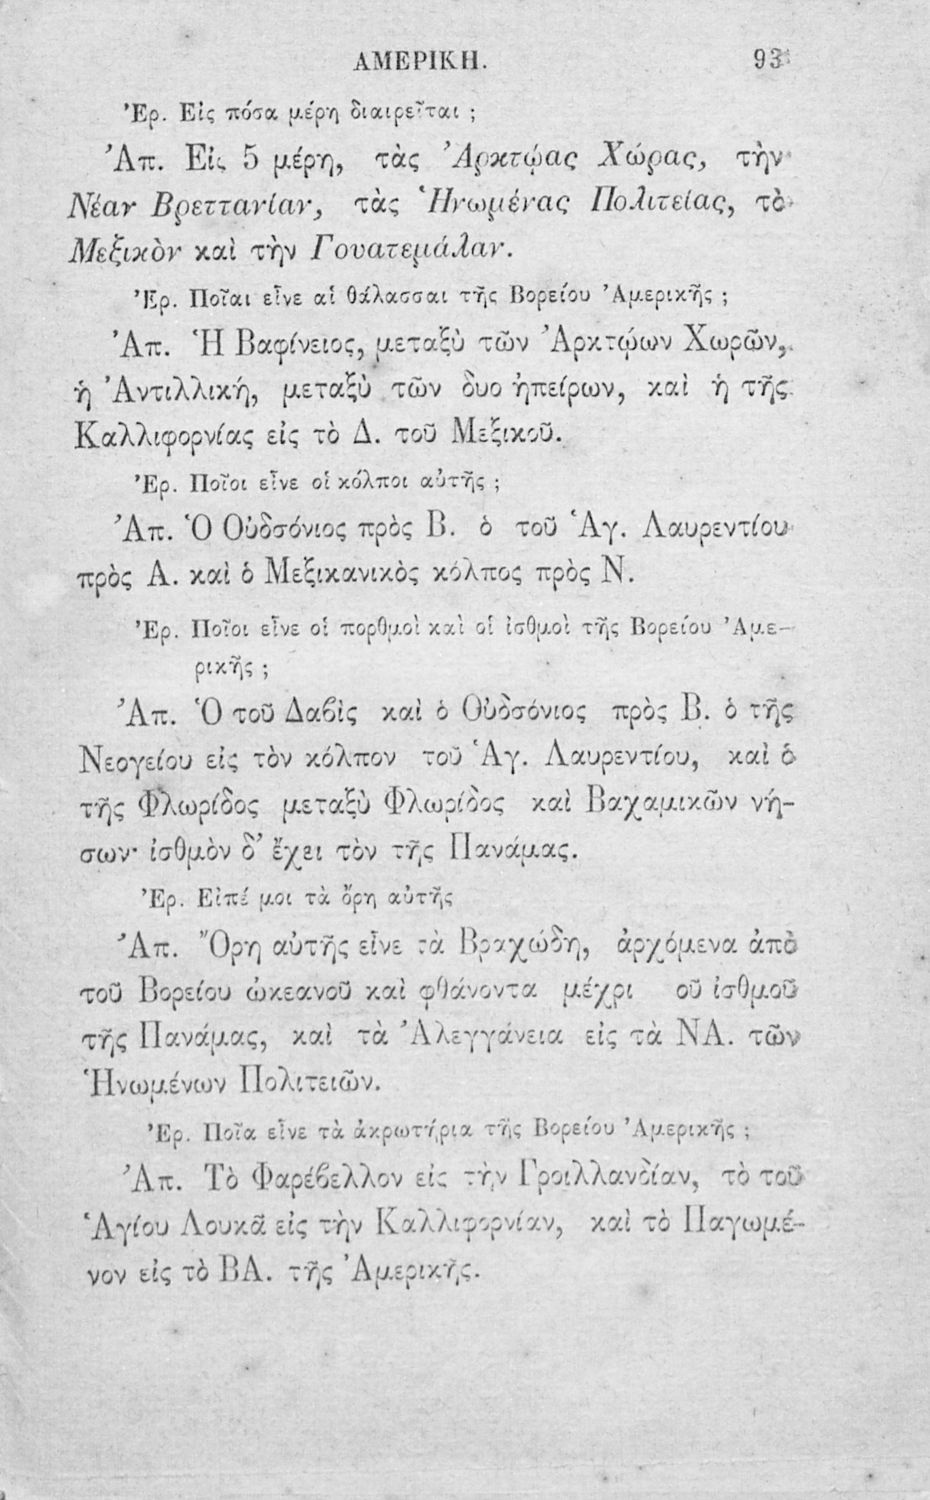 ΑΜΕΡΙΚΗ. 93
Ἐρ. Εἰς πόσα μέρη διαιρεῖται ;
Ἀπ. Εἰς 5 μέρη, τὰς Ἀρκτῴας Χώρας, τὴν
Νέαν Βρεττανίαν, τὰς Ἡνωμένας Πολιτείας, τὸ
Μεξικὸν καὶ τὴν Γουατεμάλαν.
Ἐρ. Ποῖαι εἶνε αἱ θάλασσαι τῆς Βορείου Ἀμερικῆς ;
Ἀπ. Ἡ Βαφίνειος, μεταξὺ τῶν Ἀρκτῴων Χωρῶν,
ἡ Ἀντιλλική, μεταξὺ τῶν δυο ἠπείρων, καὶ ἡ τῆς
Καλλιφορνίας εἰς τὸ Δ. τοῦ Μεξικοῦ.
Ἐρ. Ποῖοι εἶνε οἱ κόλποι αὐτῆς ;
Ἀπ. Ὁ Οὐδσόνιος πρὸς Β. ὁ τοῦ Ἁγ. Λαυρεντίου
πρὸς Α. καὶ ὁ Μεξικανικὸς κόλπος πρὸς Ν.
Ἐρ. Ποῖοι εἶνε οἱ πορθμοὶ καὶ οἱ ἰσθμοὶ τῆς Βορείου Ἀμε-
ρικῆς ;
Ἀπ. Ὁ τοῦ Δαβὶς καὶ ὁ Οὐδσόνιος πρὸς Β. ὁ τῆς
Νεογείου εἰς τὸν κόλπον τοῦ Ἁγ. Λαυρεντίου, καὶ ὁ
τῆς Φλωρίδος μεταξὺ Φλωρίδος καὶ Βαχαμικῶν νή-
σων· ἰσθμὸν δ' ἔχει τὸν τῆς Πανάμας.
Ἐρ. Εἰπέ μοι τὰ ὄρη αὐτῆς
Ἀπ. Ὄρη αὐτῆς εἶνε τὰ Βραχώδη, ἀρχόμενα ἀπὸ
τοῦ Βορείου ὠκεανοῦ καὶ φθάνοντα μέχρι οῦ ἰσθμοῦ
τῆς Πανάμας, καὶ τὰ Ἀλεγγάνεια εἰς τὰ ΝΑ. τῶν
Ἡνωμένων Πολιτειῶν.
Ἐρ. Ποῖα εἶνε τὰ ἀκρωτήρια τῆς Βορείου Ἀμερικῆς ;
Ἀπ. Τὸ Φαρέβελλον εἰς τὴν Γροιλλανδίαν, τὸ τοῦ
Ἁγίου Λουκᾶ εἰς τὴν Καλλιφορνίαν, καὶ τὸ Παγωμέ-
νον εἰς τὸ ΒΑ. τῆς Ἀμερικῆς.